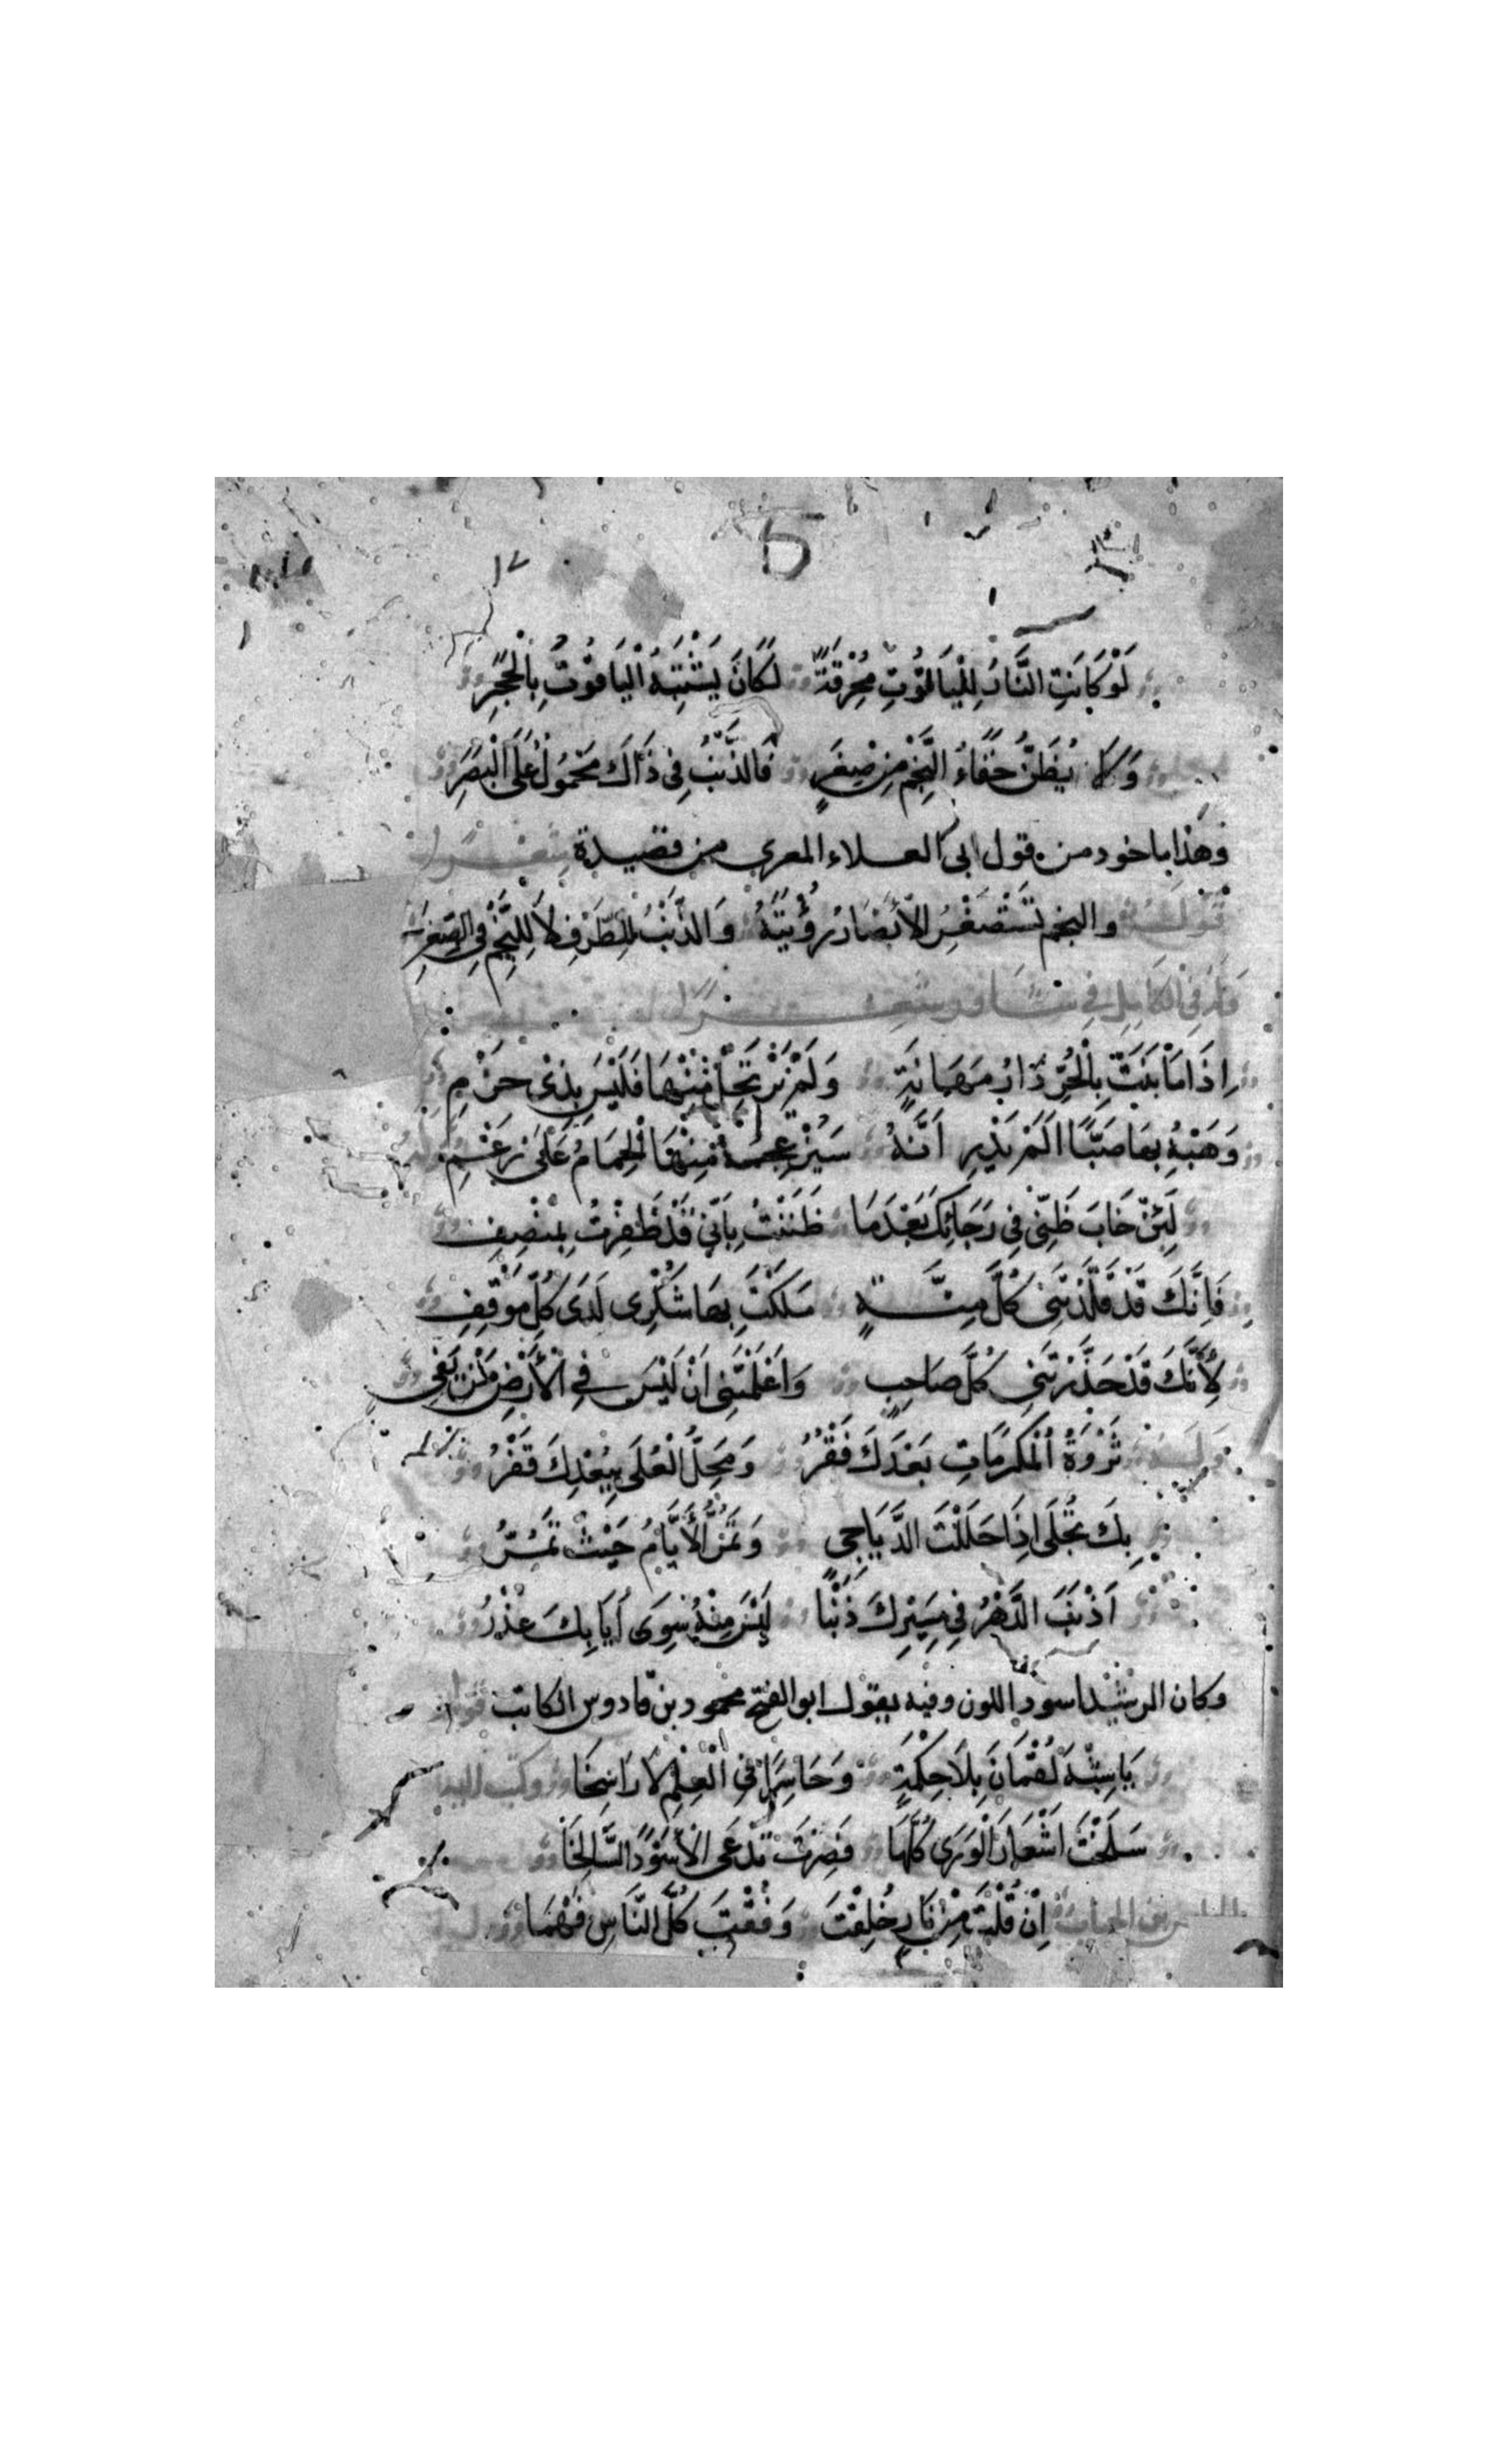 ١٢
لَوْ كَانَتِ النَّارُ لِلْيَاقُوتِ مُحْرِقَةً لَكَانَ يَشْتَبِهُ الْيَاقُوتُ بِالْحَجَرِ
وَلَا يُظَنُّ خَفَاءُ النَّجْمِ مِنْ صِغَرٍ فَالذَّنْبُ فِي ذَاكَ مَحْمُولٌ عَلَى الْبَصَرِ
وهذا ماخود من قول ابى العلاء المعري من قصيدة
والنجم تَسْتَصْغِرُ الْأَبْصَارُ رُؤْيَتَهُ وَالذَّنْبُ لِلطَّرْفِ لَا لِلنَّجْمِ فِي الصِّغَرِ
إِذَا مَا نَبَتْ بِالْحُرِّ دَارُ مَهَانَةٍ وَلَمْ يَرْتَحِلْ عَنْهَا فَلَيْسَ بِذِي حَزْمِ
وَهَبْهُ بِهَا صَبًّا اَلَمْ يَدْرِ اَنَّهُ سَيُزْعِجُهُ مِنْهَا الْحِمَامُ عَلَى رَغْمِ
لَئِنْ خَابَ ظَنِّي فِي رَجَائِكَ بَعْدَمَا ظَنَنْتُ بِأَنِّي قَدْ ظَفِرْتُ بِمُنْصِفِ
فَإِنَّكَ قَدْ قَلَّدْتَنِي كُلَّ مِنَّةٍ مَلَكْتَ بِهَا شُكْرِي لَدَى كُلِّ مَوْقِفِ
لِأَنَّكَ قَدْ حَذَّرْتَنِي كُلَّ صَاحِبٍ وَاَعْلَمْتَنِي اَنْ لَيْسَ فِي الْأَرْضِ مَنْ يَفِي
وَلَهُ ثَرْوَةُ الْمَكْرُمَاتِ بَعْدَكَ فَقْرُ وَمَحَلُّ الْعُلَى بِبُعْدِكَ قَفْرُ
بِكَ تُجْلَى اِذَا حَلَلْتَ الدَّيَاجِي وَتَمُرُّ الْأَيَّامُ حَيْثُ تَمُرُّ
اَذْنَبَ الدَّهْرُ فِي مَسِيرِكَ ذَنْبًا لَيْسَ مِنْهُ سِوَى اَيَابِكَ عُذْرُ
وكان الرشيد اسود اللون وفيه يقول ابو الفتح محمود بن قادوس الكاتب
يَا شِبْهَ لُقْمَانَ بِلَا حِكْمَةٍ وَخَاسِرًا فِي الْعِلْمِ لَا رَاسِخَا
سَلَخْتَ اَشْعَارَ الْوَرَى كُلَّهَا فَصِرْتَ تُدْعَى الْأَسْوَدَ السَّالِخَا
اِنْ قُلْتَ مِنْ نَارٍ خُلِقْتَ وَفُقْتَ كُلَّ النَّاسِ فَهْمَا